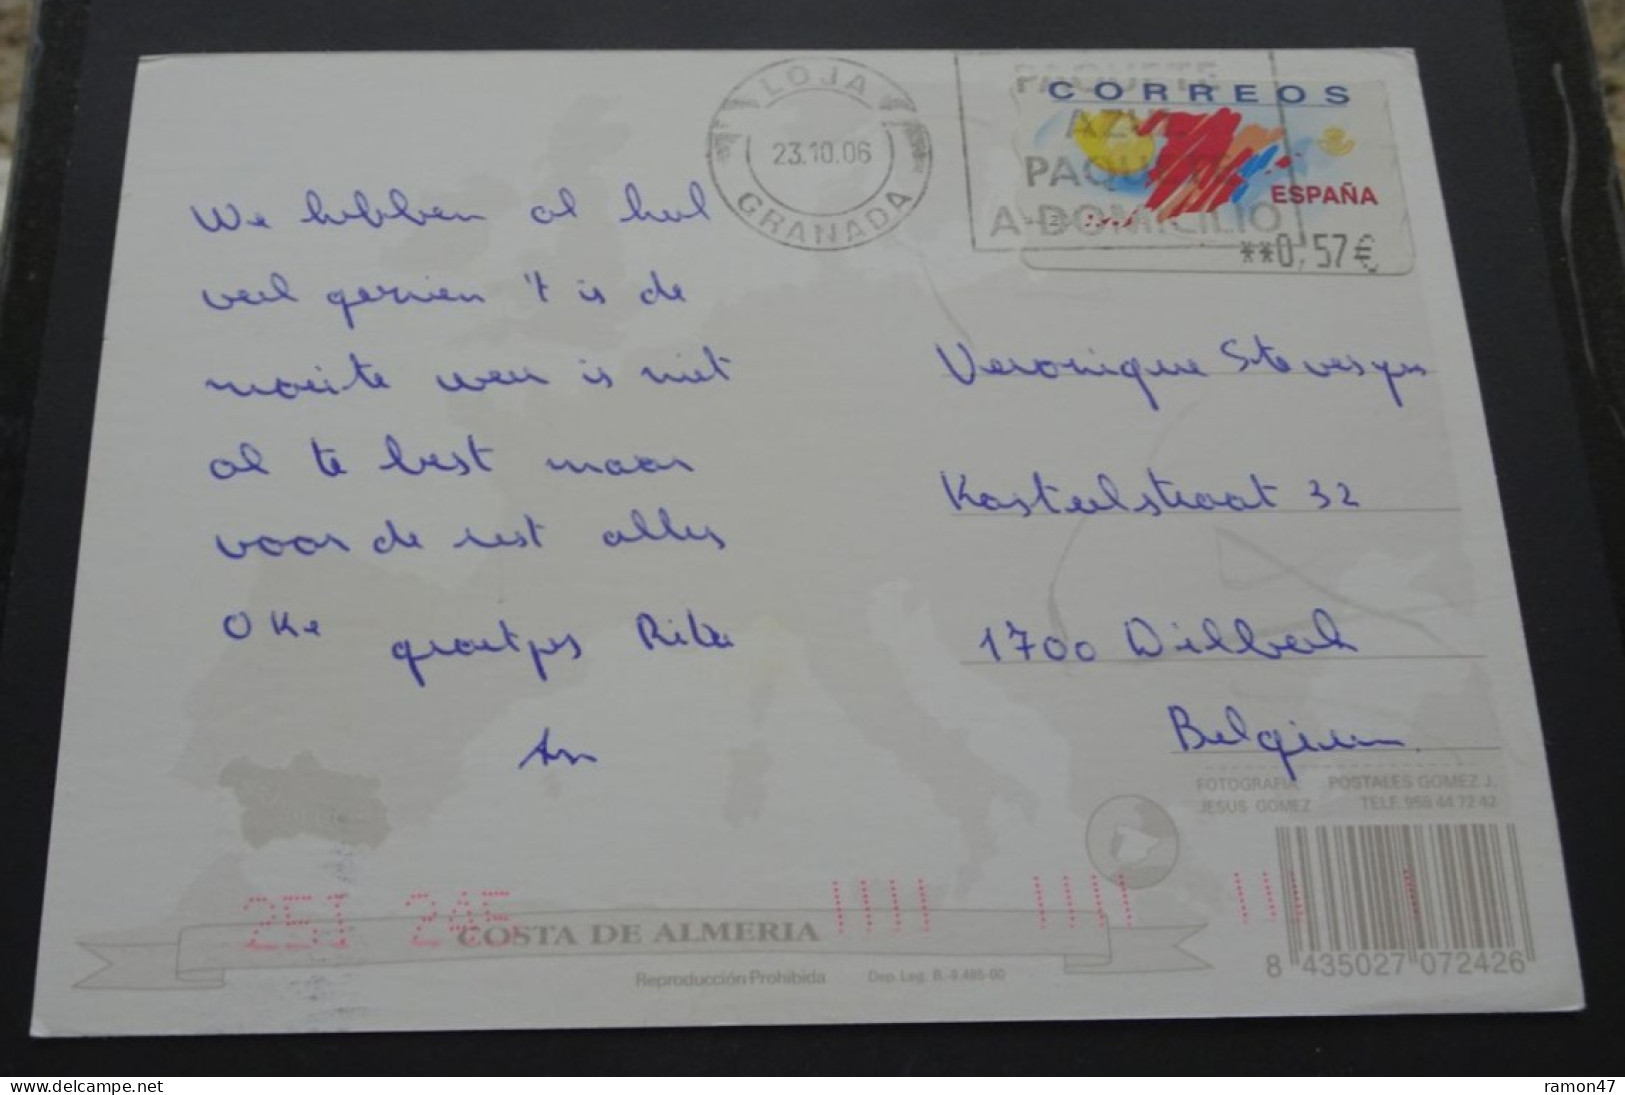 LOJA
23.10.06
GRANADA
PAQUETE
AZUL
PAQUETE
A DOMICILIO
CORREOS
ESPAÑA
**0,57€
We hebben al heel
veel gezien 't is de
moeite weer is niet
al te best maar
voor de rest alles
Oke groetjes Rita
An
Veronique
Kasteelstraat 32
1700 Dilbeek
Belgium
FOTOGRAFIA: POSTALES GOMEZ J.
JESUS GOMEZ TELF. 956 44 72 42
251 245
COSTA DE ALMERIA
Reproducción Prohibida Dep. Leg. B.-9.485-00
8 435027 072426
www.delcampe.net
ramon47